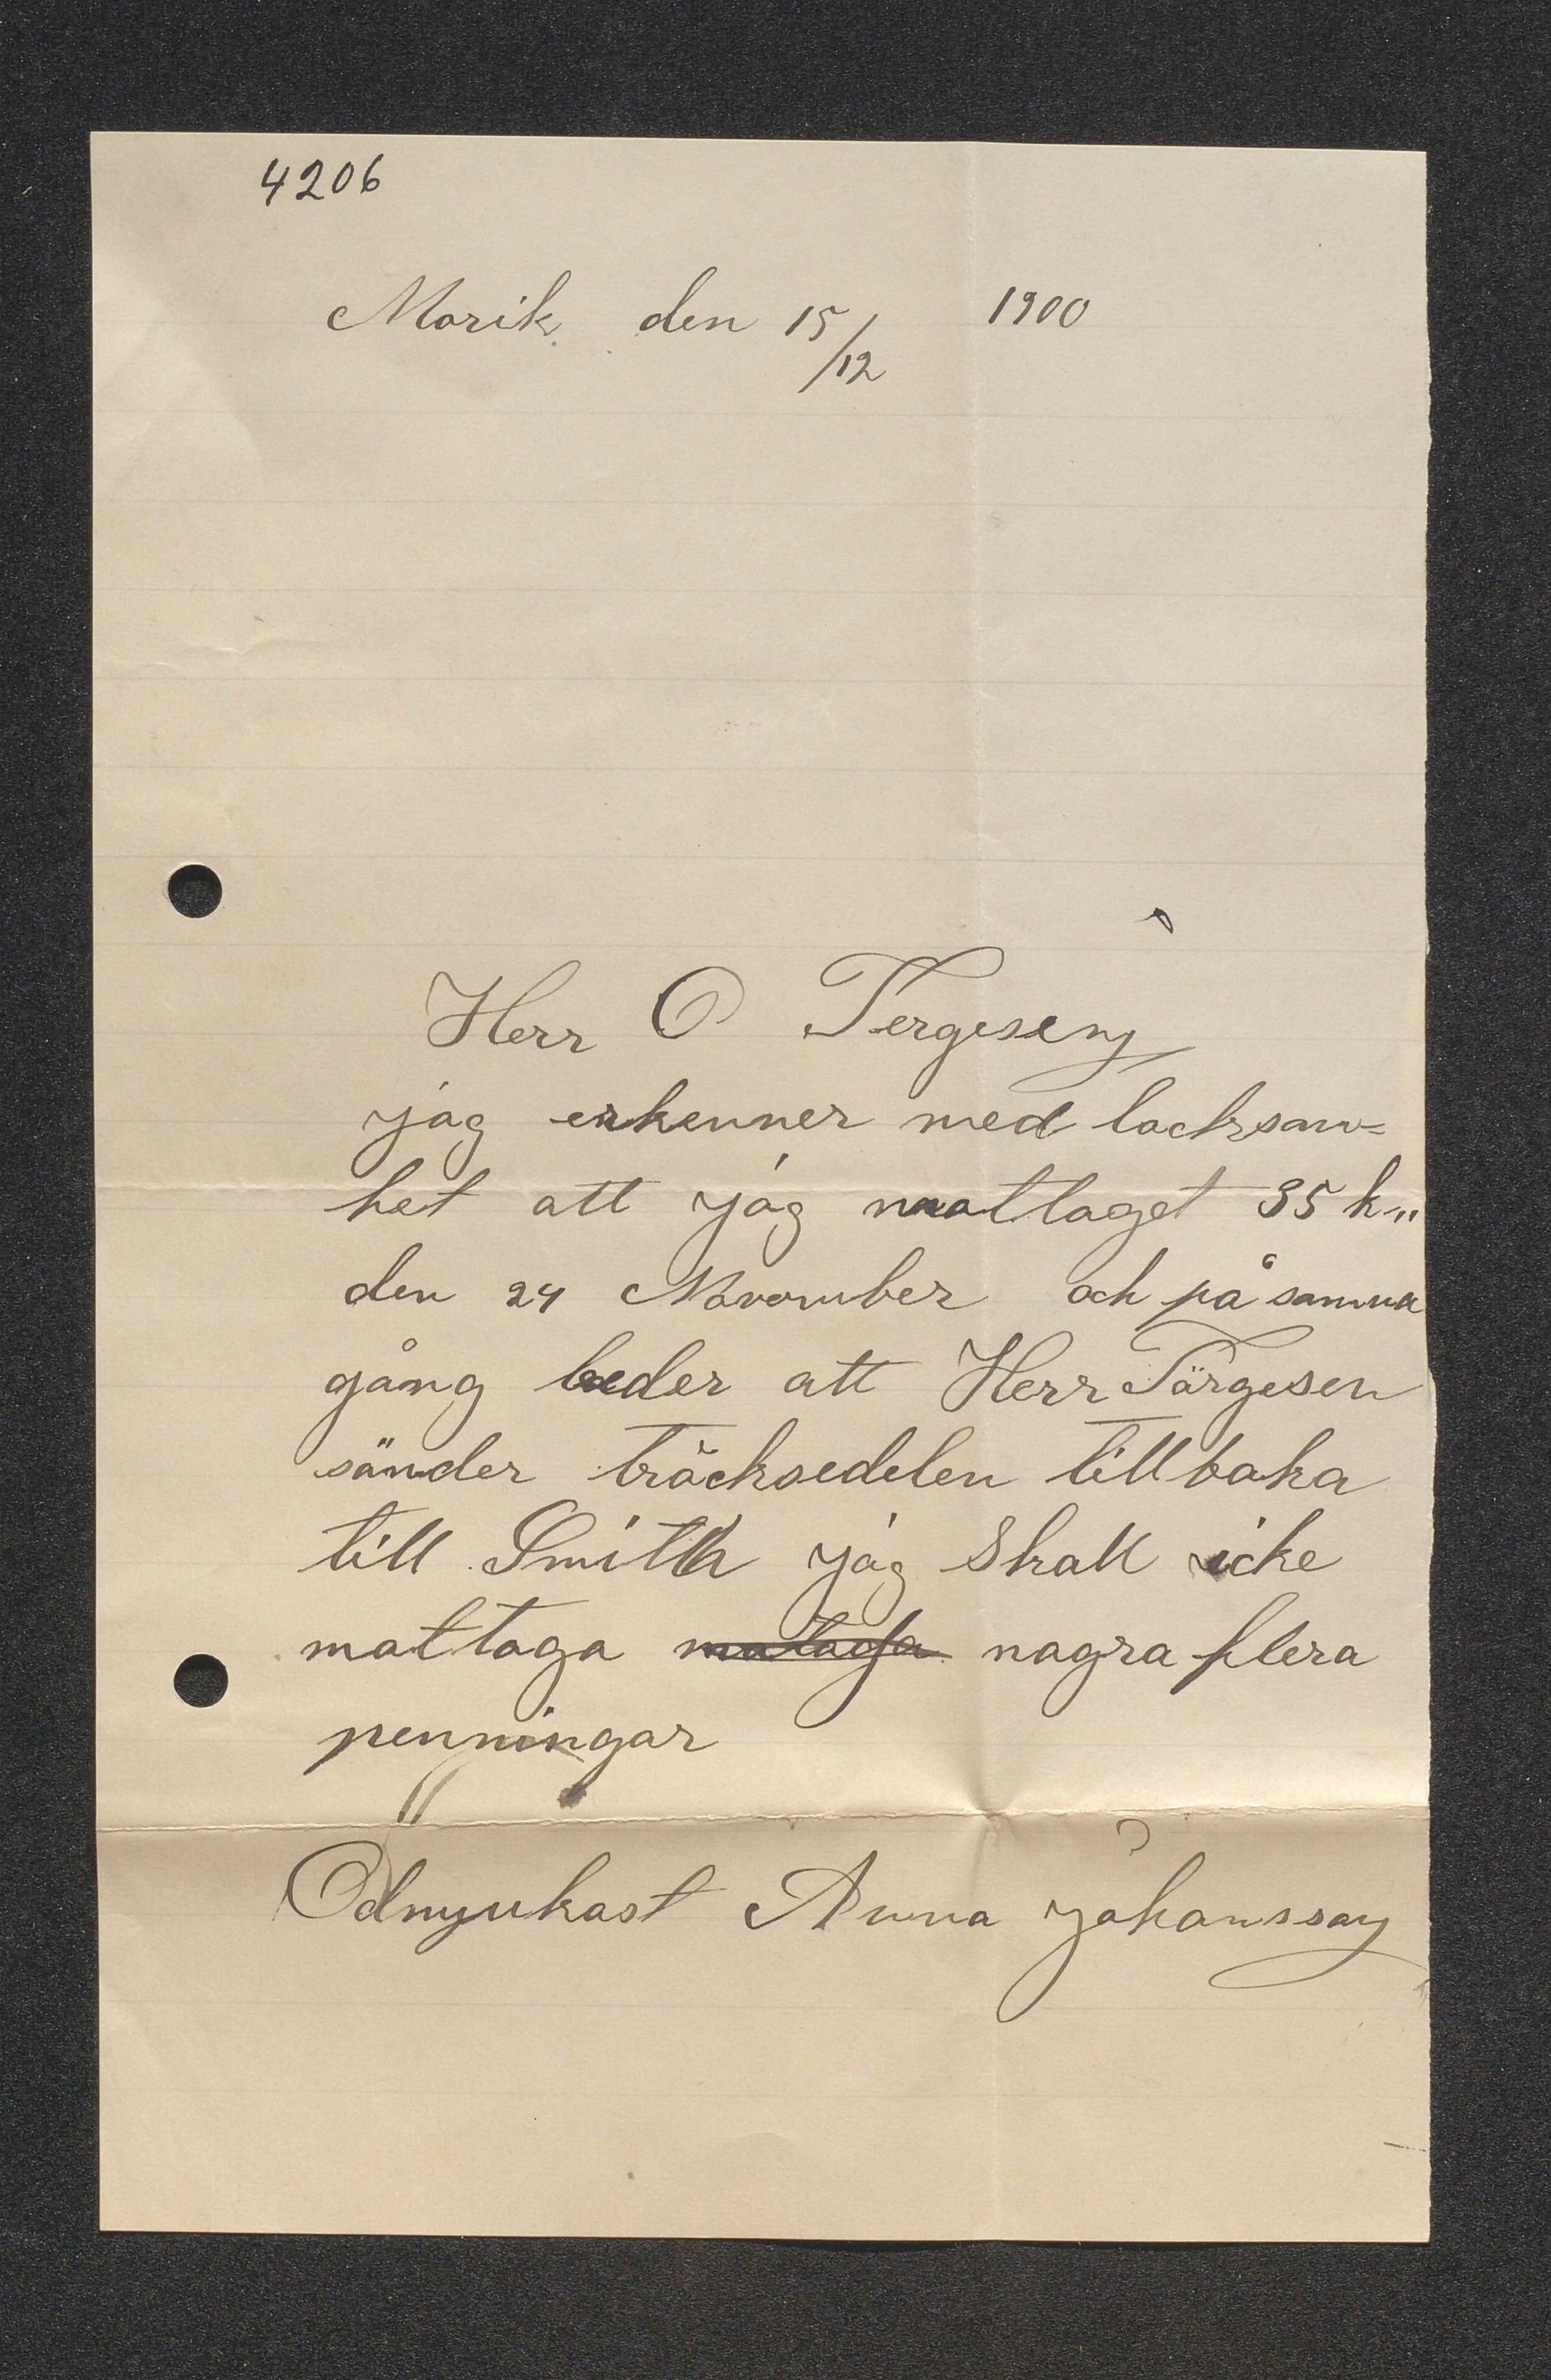 4206
Morik den 15/12 1900
Herr O Tergesen
jag erkenner med tacksam=
het att jag mattaget 35 k„
den 24 November och på samma
gång beder att Herr Tärgesen
sänder träcksedelen tillbaka
till Smith jag skall icke
mattaga mataga nagra flera
penningar
Ödmyukast Anna Johansson